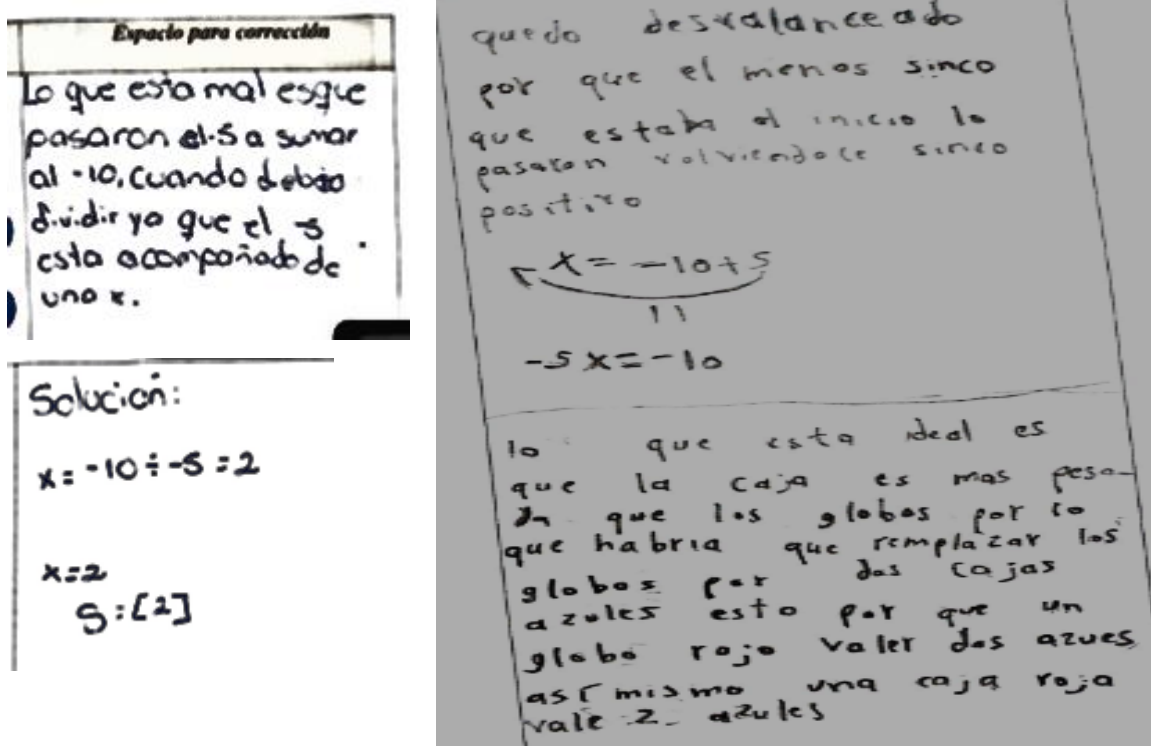 Espacio para corrección
Lo que esta mal esque
pasaron el -5 a sumar
al -10, cuando debia
dividir ya que el -5
esta acompañado de
una x.
Solución:
x = -10 ÷ -5 = 2
x = 2
S: [2]
quedo desvalanceado
por que el menos sinco
que estaba al inicio lo
pasaron volviendoce sinco
positivo
x = -10 + 5
11
-5x = -10
lo que esta ideal es
que la caja es mas pesa-
da que los globos por lo
que habria que remplazar los
globos por dos cajas
azules esto por que un
globo rojo valer dos azues
así mismo una caja roja
vale 2 azules